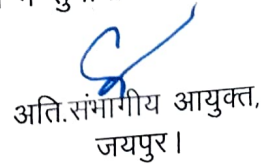 अति.संभागीय आयुक्त,
जयपुर।